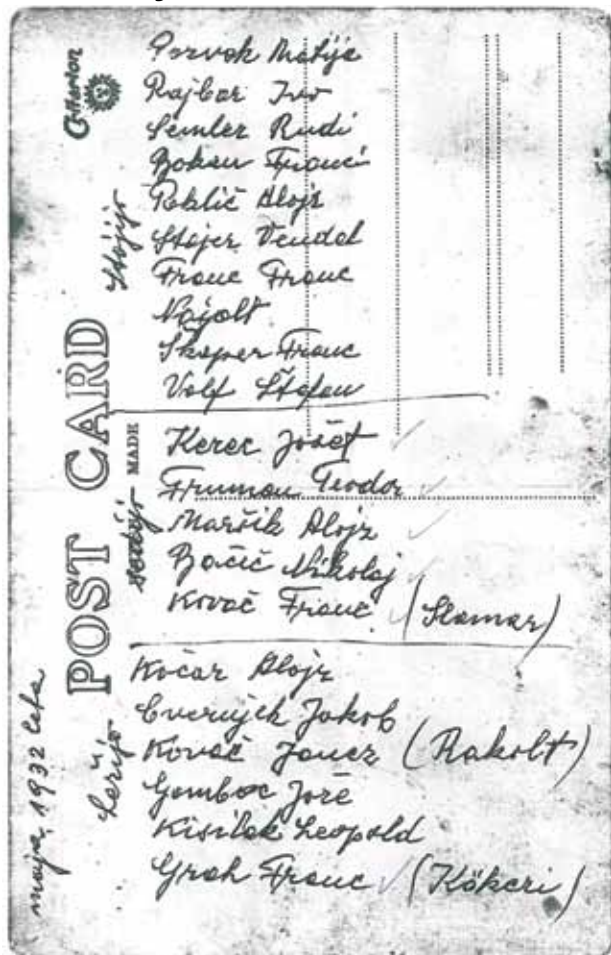 Criterion
POST CARD
MADE
maja, 1932 leta
Stojijo
Rajbar Ivo
Semler Rudi
Franci
Peklič Alojz
Štajer Vendel
Franc Franc
Skaper Franc
Volf Štefan
sedijo
Kerec Jožef
Fruman Teodor
Maršik Alojz
Bačič Nikolaj
Kovač Franc (Slamar)
Ležijo
Kočar Alojz
Jakob
Kovač Janez (Rakolt)
Gomboc Jože
Kisilak Leopold
Grah Franc (Kökeri)